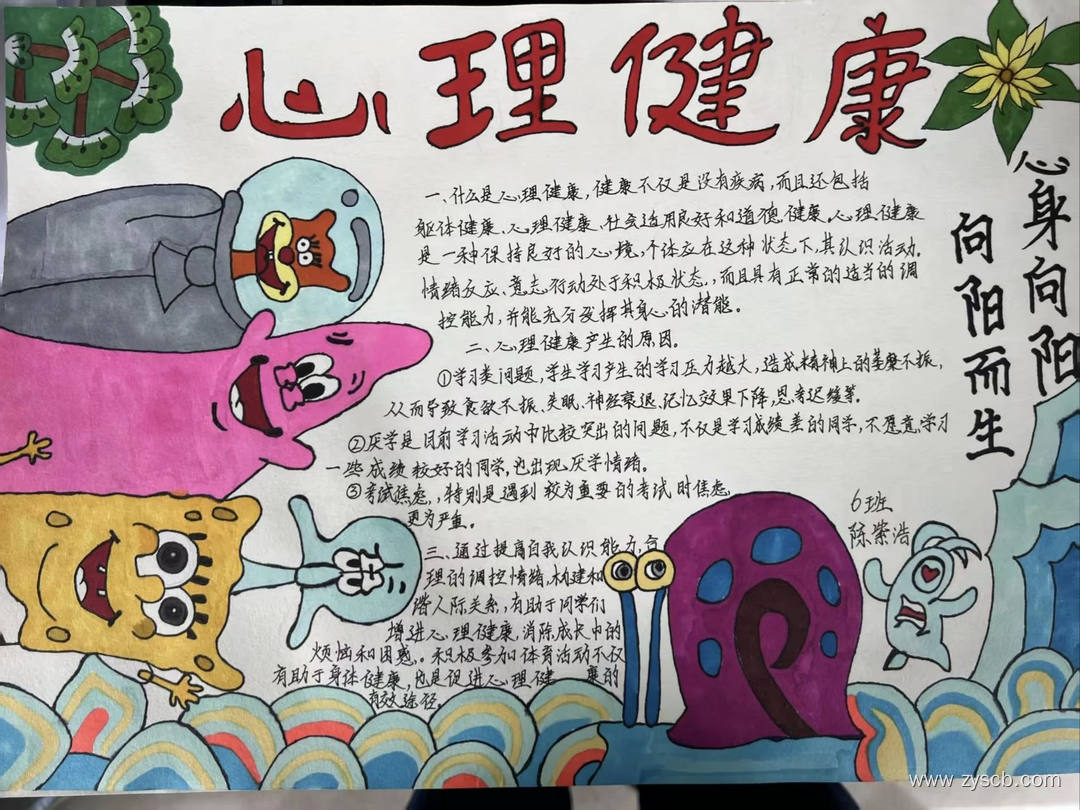 心理健康
心身向阳
向阳而生
一、什么是心理健康,健康不仅是没有疾病,而且还包括
躯体健康、心理健康、社会适用良好和道德健康。心理健康
是一种保持良好的心境,个体应在这种状态下,其认识活动,
情绪反应、意志行动处于积极状态,而且具有正常的适当的调
控能力,并能充分发挥其身心的潜能。
二、心理健康产生的原因。
①学习类问题,学生学习产生的学习压力越大,造成精神上的萎靡不振,
从而导致食欲不振、失眠、神经衰退、记忆效果下降,思考迟缓等。
②厌学是目前学习活动中比较突出的问题,不仅是学习成绩差的同学,不愿意学习
一些成绩较好的同学,也出现厌学情绪。
③考试焦虑,特别是遇到较为重要的考试时焦虑
更为严重。
三、通过提高自我认识能力,合
理的调控情绪,构建和
谐人际关系,有助于同学们
增进心理健康,消除成长中的
烦恼和困惑。积极参加体育活动不仅
有助于身体健康,也是促进心理健 康的
有效途径。
6班
陈崇浩
www.zyscb.com